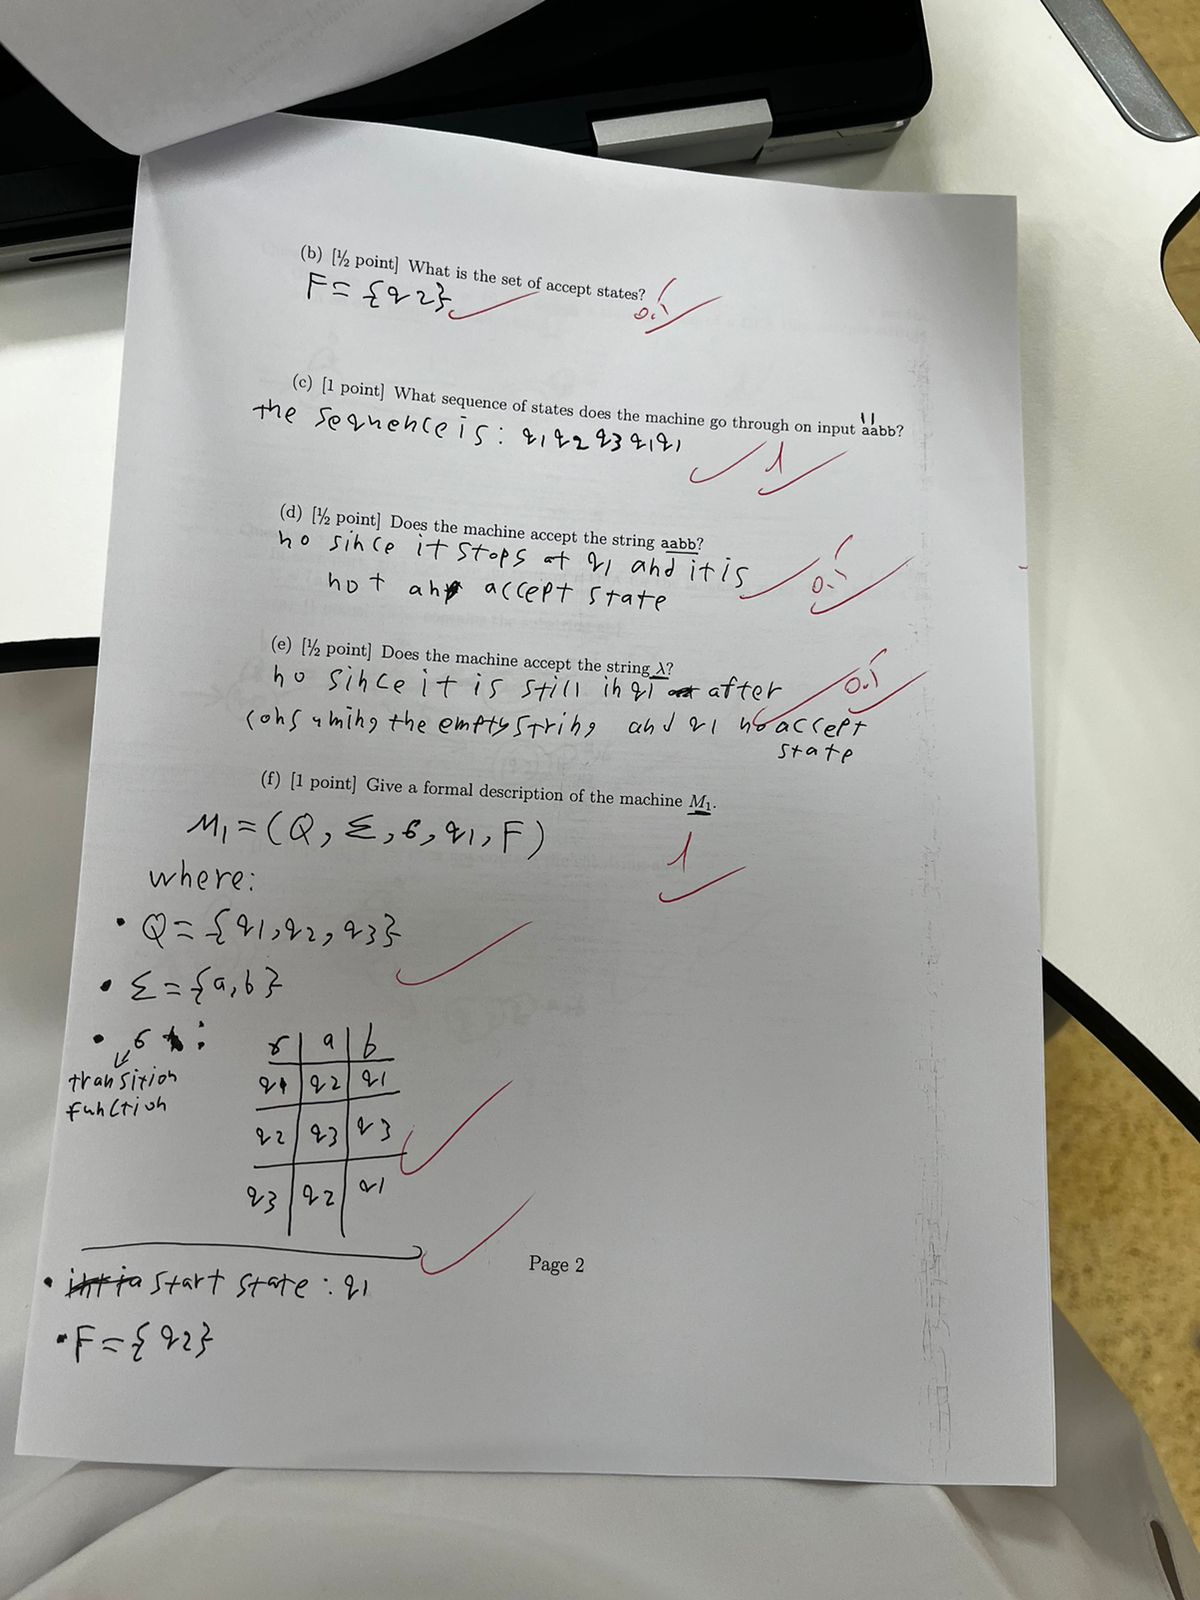 (b) [½ point] What is the set of accept states?
F = {q2}
0.5
(c) [1 point] What sequence of states does the machine go through on input aabb?
the sequence is: q1 q2 q3 q1 q1
1
(d) [½ point] Does the machine accept the string aabb?
no since it stops at q1 and it is
not an accept state
0.5
(e) [½ point] Does the machine accept the string λ?
no since it is still in q1 after
consuming the empty string and q1 no accept
state
0.5
(f) [1 point] Give a formal description of the machine M₁.
M₁ = (Q, Σ, δ, q1, F)
1
where:
• Q = {q1, q2, q3}
• Σ = {a, b}
• δ :
transition
function
δ | a | b
q1 | q2 | q1
q2 | q3 | q3
q3 | q2 | q1
Page 2
• start state : q1
• F = {q2}